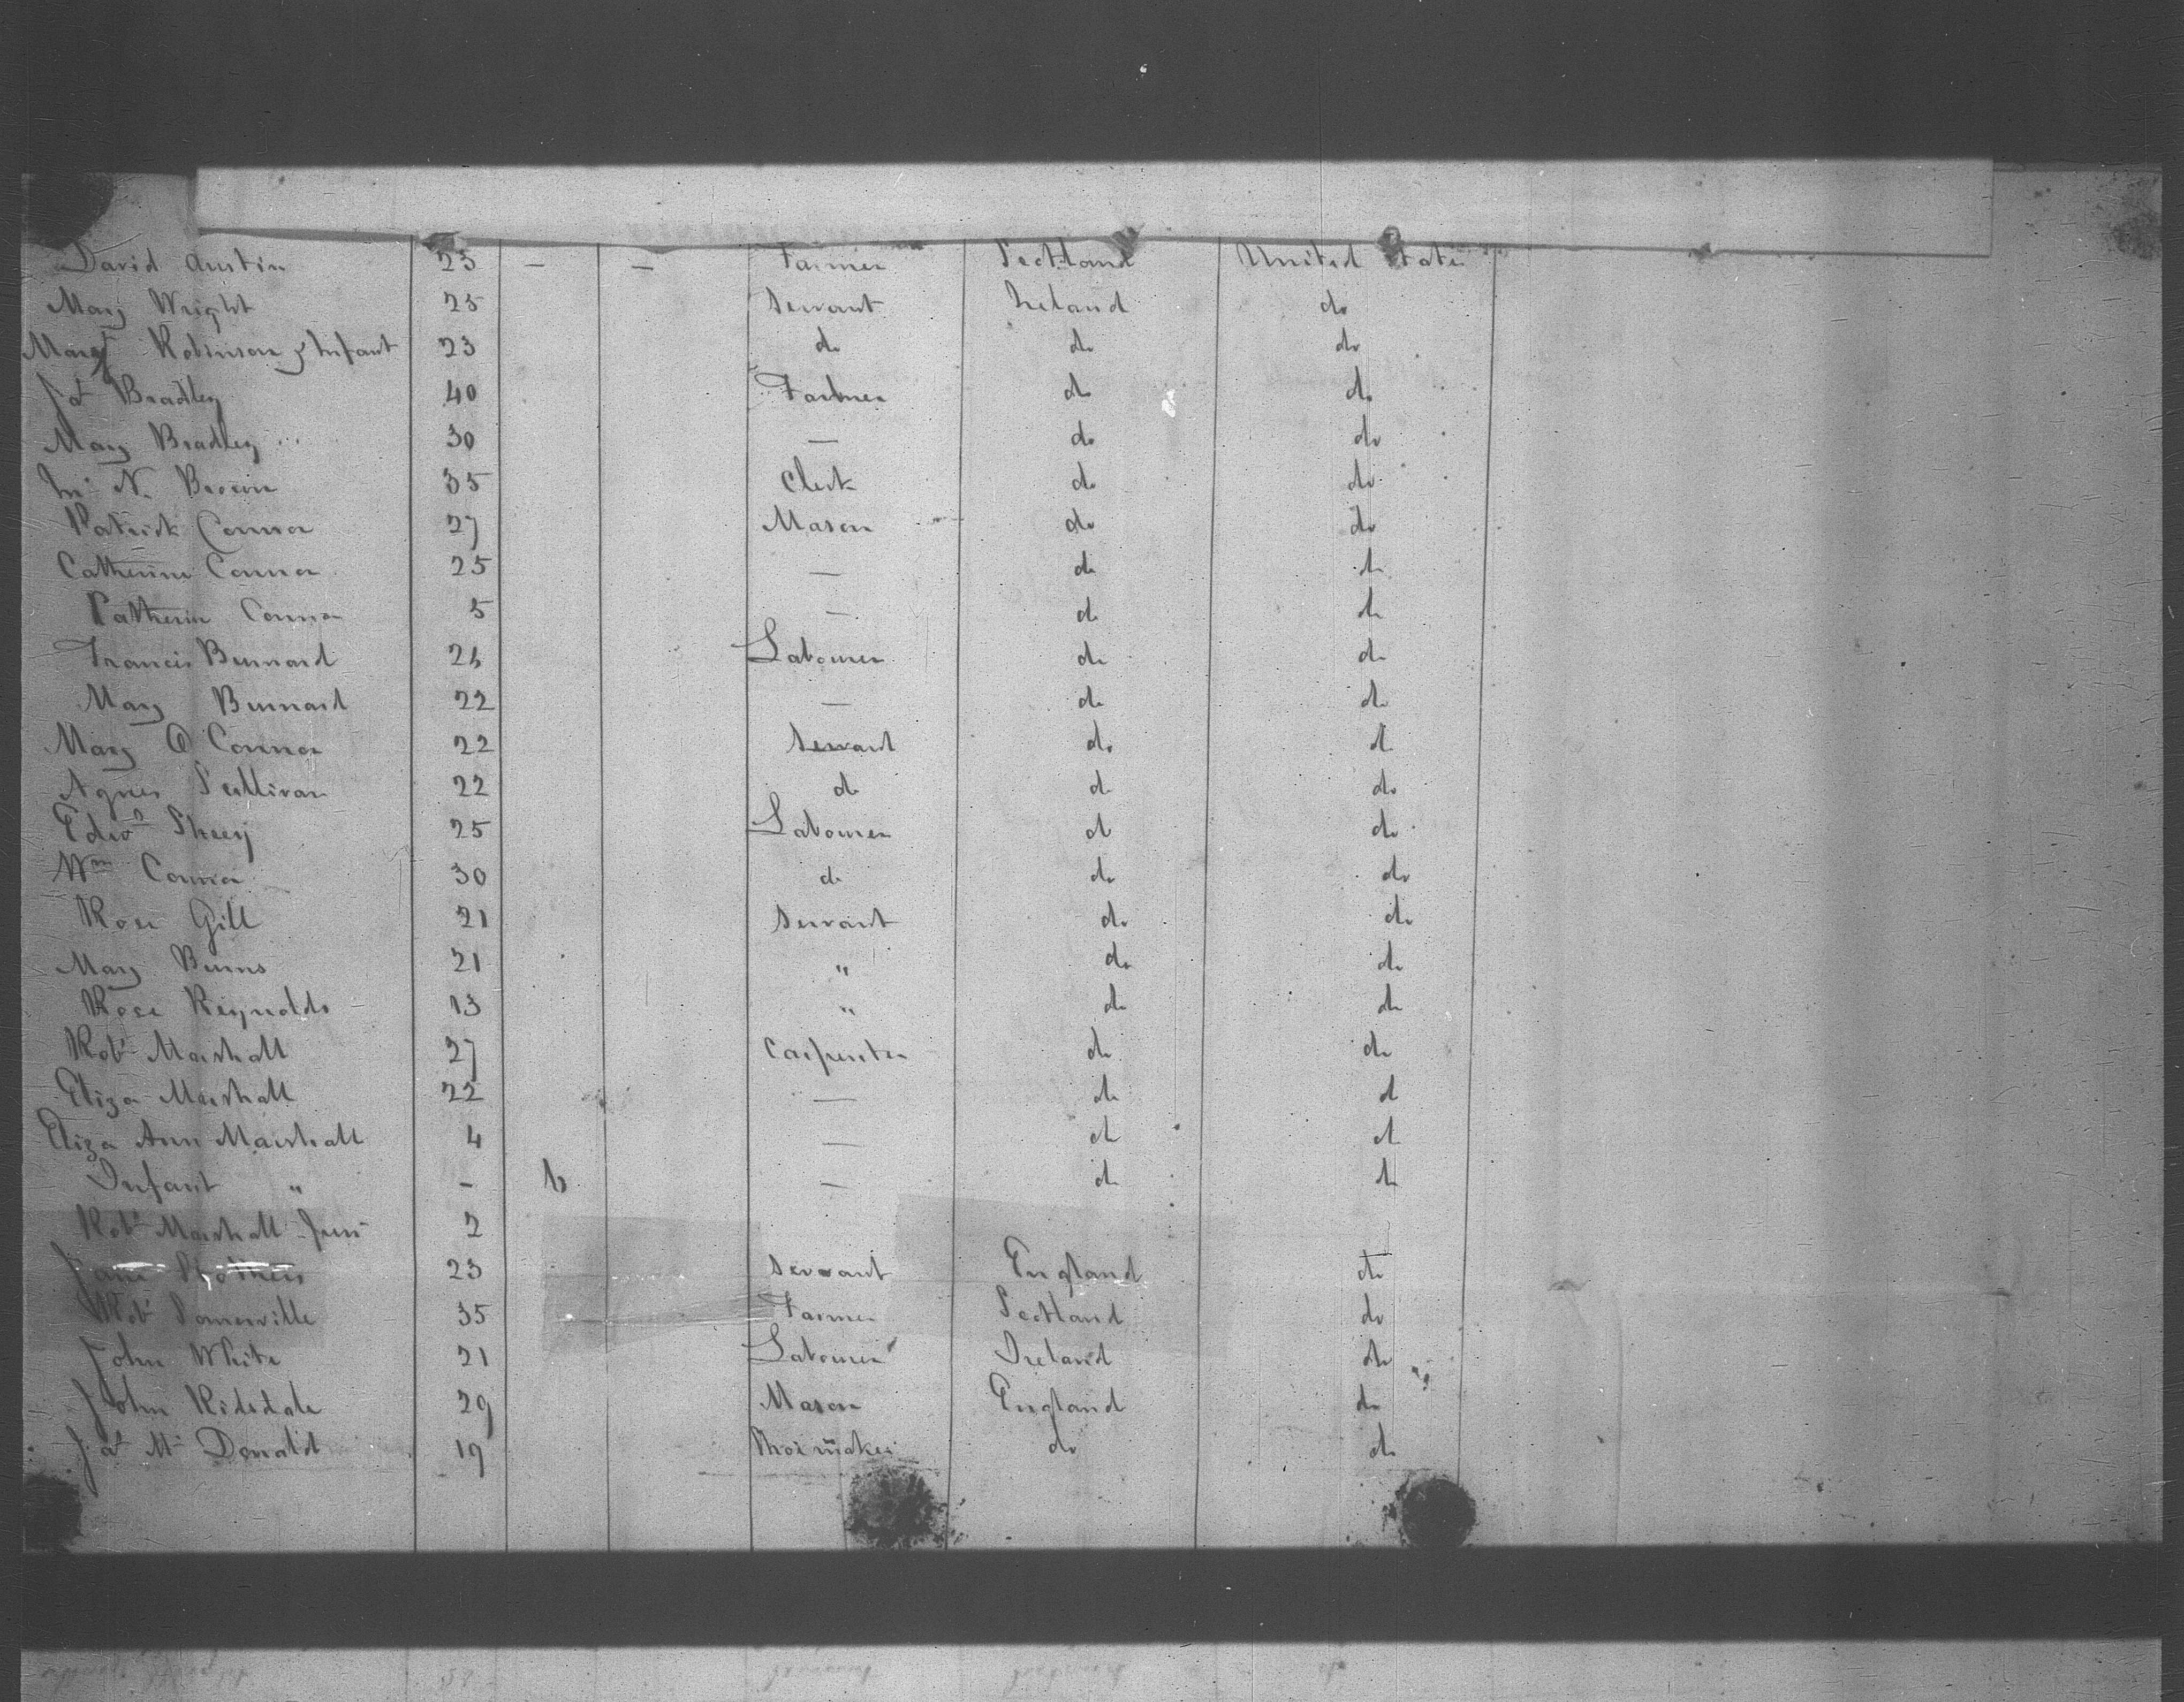 David Austin 23 — — Farmer Scotland United States
Mary Wright 25 Servant Ireland do
Margt Robinson & Infant 23 do do do
Jas Bradley 40 Farmer do do
Mary Bradley 30 — do do
N. Brown 35 Clerk do do
Patrick Connor 27 Mason do do
Catherine Connor 25 — do do
Catherin Connor 5 — do do
Francis Burnard 26 Labourer do do
Mary Burnard 22 — do do
Mary O Connor 22 Servant do do
Agnes Sullivan 22 do do do
Edwd Sheey 25 Labourer do do
Wm Connor 30 do do do
Rose Gill 21 Servant do do
Mary Burns 21 " do do
Rose Reynolds 13 " do do
Robt Marshall 27 Carpenter do do
Eliza Marshall 22 — do do
Eliza Ann Marshall 4 — do do
Infant " - — do do
Robt Marshall Junr 2
Jane 23 Servant England do
Robt Somerville 35 Farmer Scotland do
John White 21 Labourer Ireland do
John Ridsdale 29 Mason England do
Jas Mc Donald 19 Shoemaker do do